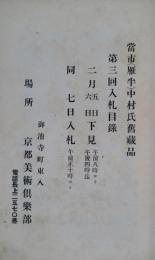 當市雁半中村氏舊藏品
第三回入札目錄
二月五日六日下見 午前八時ヨリ午後四時迄
同七日入札 午前正十時ヨリ
御池寺町東入
場所 京都美術倶樂部
電話長上二五七〇番